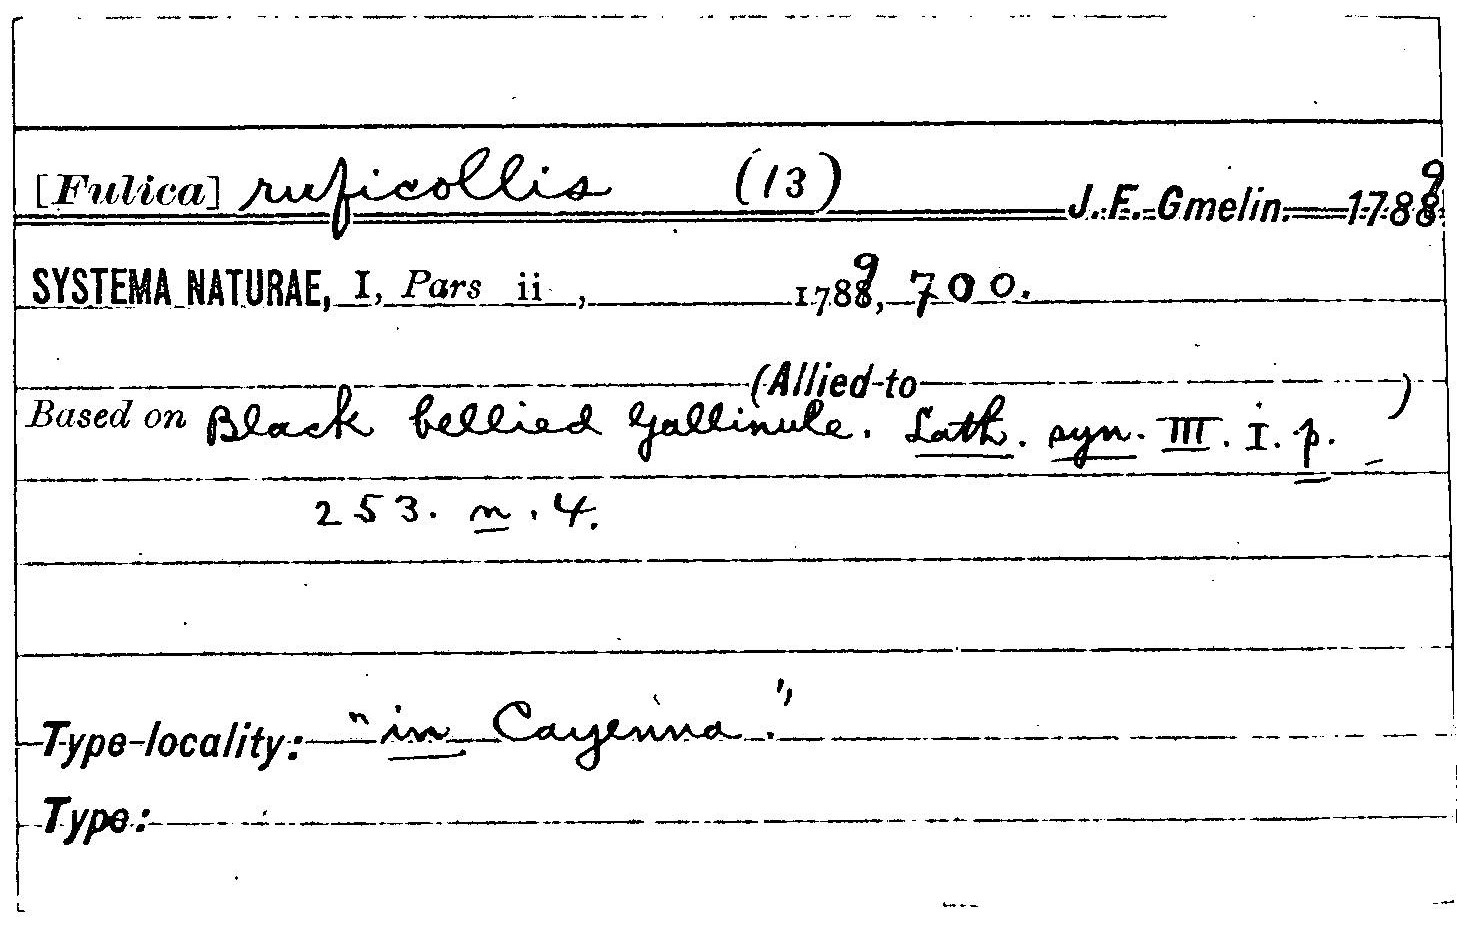 [Fulica] ruficollis (13) J. F. Gmelin. 1789
SYSTEMA NATURAE, I, Pars ii, 1789, 700.
(Allied to )
Based on Black bellied Gallinule. Lath. syn. III. I. p.
253. n. 4.
Type-locality: "in Cayenna."
Type: